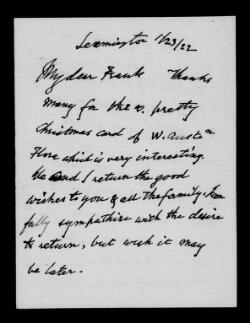 Lexington 12/23/22
My dear Frank Thanks
many for the v. pretty
Christmas card of W. Austn
Flora which is very interesting.
We and I return the good
wishes to you & all the family.
fully sympathise with the desire
to return, but wish it may
be later.